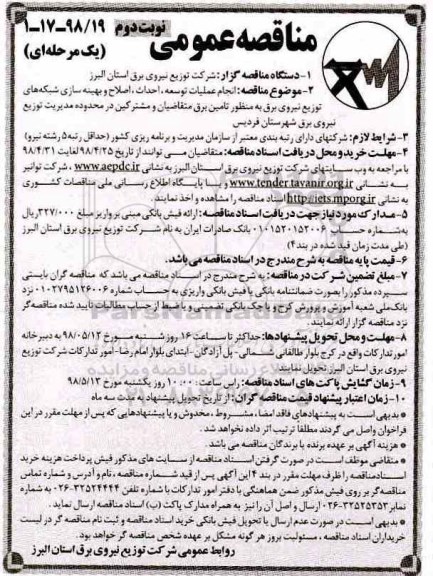 مناقصه عمومی
نوبت دوم
۹۸/۱۹-۱۷-۱
(یک مرحله‌ای)
۱-دستگاه مناقصه گزار: شرکت توزیع نیروی برق استان البرز
۲-موضوع مناقصه: انجام عملیات توسعه، احداث، اصلاح و بهینه سازی شبکه‌های
توزیع نیروی برق به منظور تامین برق متقاضیان و مشترکین در محدوده مدیریت توزیع
نیروی برق شهرستان فردیس
۳- شرایط لازم: شرکتهای دارای رتبه بندی معتبر از سازمان مدیریت و برنامه ریزی کشور (حداقل رتبه ۵ رشته نیرو)
۴-مهلت خرید و محل دریافت اسناد مناقصه: متقاضیان می توانند از تاریخ ۹۸/۴/۲۵ لغایت ۹۸/۴/۳۱
با مراجعه به وب سایتهای شرکت توزیع نیروی برق استان البرز به نشانی www.aepdc.ir ، شرکت توانیر
به نشانی www.tender.tavanir.org.ir و یا پایگاه اطلاع رسانی ملی مناقصات کشوری به نشانی
http://iets.mporg.ir اسناد مناقصه را مشاهده و اخذ نمایند.
۵-مدارک مورد نیاز جهت دریافت اسناد مناقصه: ارائه فیش بانکی مبنی بر واریز مبلغ ۳۲۷/۰۰۰ ریال
به شماره حساب ۰۱۰۱۵۲۰۱۵۲۰۰۶ بانک صادرات ایران به نام شرکت توزیع نیروی برق استان البرز
(طی مدت زمان قید شده در بند ۴)
۶-قیمت پایه مناقصه به شرح مندرج در اسناد مناقصه می باشد.
۷-مبلغ تضمین شرکت در مناقصه: به شرح مندرج در اسناد مناقصه می باشد که مناقصه گران بایستی
سپرده مذکور را بصورت ضمانتنامه بانکی یا فیش بانکی واریزی به حساب شماره ۰۱۰۲۷۹۵۱۲۶۰۰۶ نزد
بانک ملی شعبه آموزش و پرورش کرج و یا چک بانکی تضمینی و یا ضبط از حساب مطالبات تایید شده مناقصه گر
نزد مناقصه گزار ارائه نمایند.
۸-مهلت و محل تحویل پیشنهادها: حداکثر تا ساعت ۱۶ روز شنبه مورخ ۹۸/۰۵/۱۲ به دبیرخانه
امور تدارکات واقع در کرج بلوار طالقانی شمالی- پل آزادگان- ابتدای بلوار امام رضا- امور تدارکات شرکت توزیع
نیروی برق استان البرز تحویل نمایند.
۹-زمان گشایش پاکت های اسناد مناقصه: راس ساعت ۱۰:۰۰ روز یکشنبه مورخ ۹۸/۵/۱۳
۱۰-زمان اعتبار پیشنهاد قیمت مناقصه گران: از تاریخ تحویل پیشنهاد به مدت سه ماه
* بدیهی است به پیشنهادهای فاقد امضا، مشروط، مخدوش و یا پیشنهادهایی که پس از مهلت مقرر در این
فراخوان واصل می گردند مطلقاً ترتیب اثر داده نخواهد شد.
* هزینه آگهی بر عهده برنده یا برندگان مناقصه می باشد.
* متقاضی موظف است در صورت گرفتن اسناد مناقصه از سایت های مذکور فیش پرداخت هزینه خرید
اسناد مناقصه را ظرف مهلت مقرر در بند ۴ این آگهی پس از قید شماره مناقصه، نام و آدرس و شماره تماس
مناقصه گر بر روی فیش مذکور ضمن هماهنگی با دفتر امور تدارکات با شماره تلفن ۳۲۵۲۴۴۴۴-۰۲۶ به شماره
نمابر ۳۲۵۲۵۳۵۳-۰۲۶ ارسال و اصل آن را نیز به همراه مدارک پاکت (ب) اسناد مناقصه ارسال نماید.
* بدیهی است در صورت عدم ارسال یا تحویل فیش بانکی خرید اسناد مناقصه و ثبت نام مناقصه گر در لیست
خریداران اسناد مناقصه، مسئولیت بروز هر گونه مشکل بر عهده شخص مناقصه گر خواهد بود.
روابط عمومی شرکت توزیع نیروی برق استان البرز